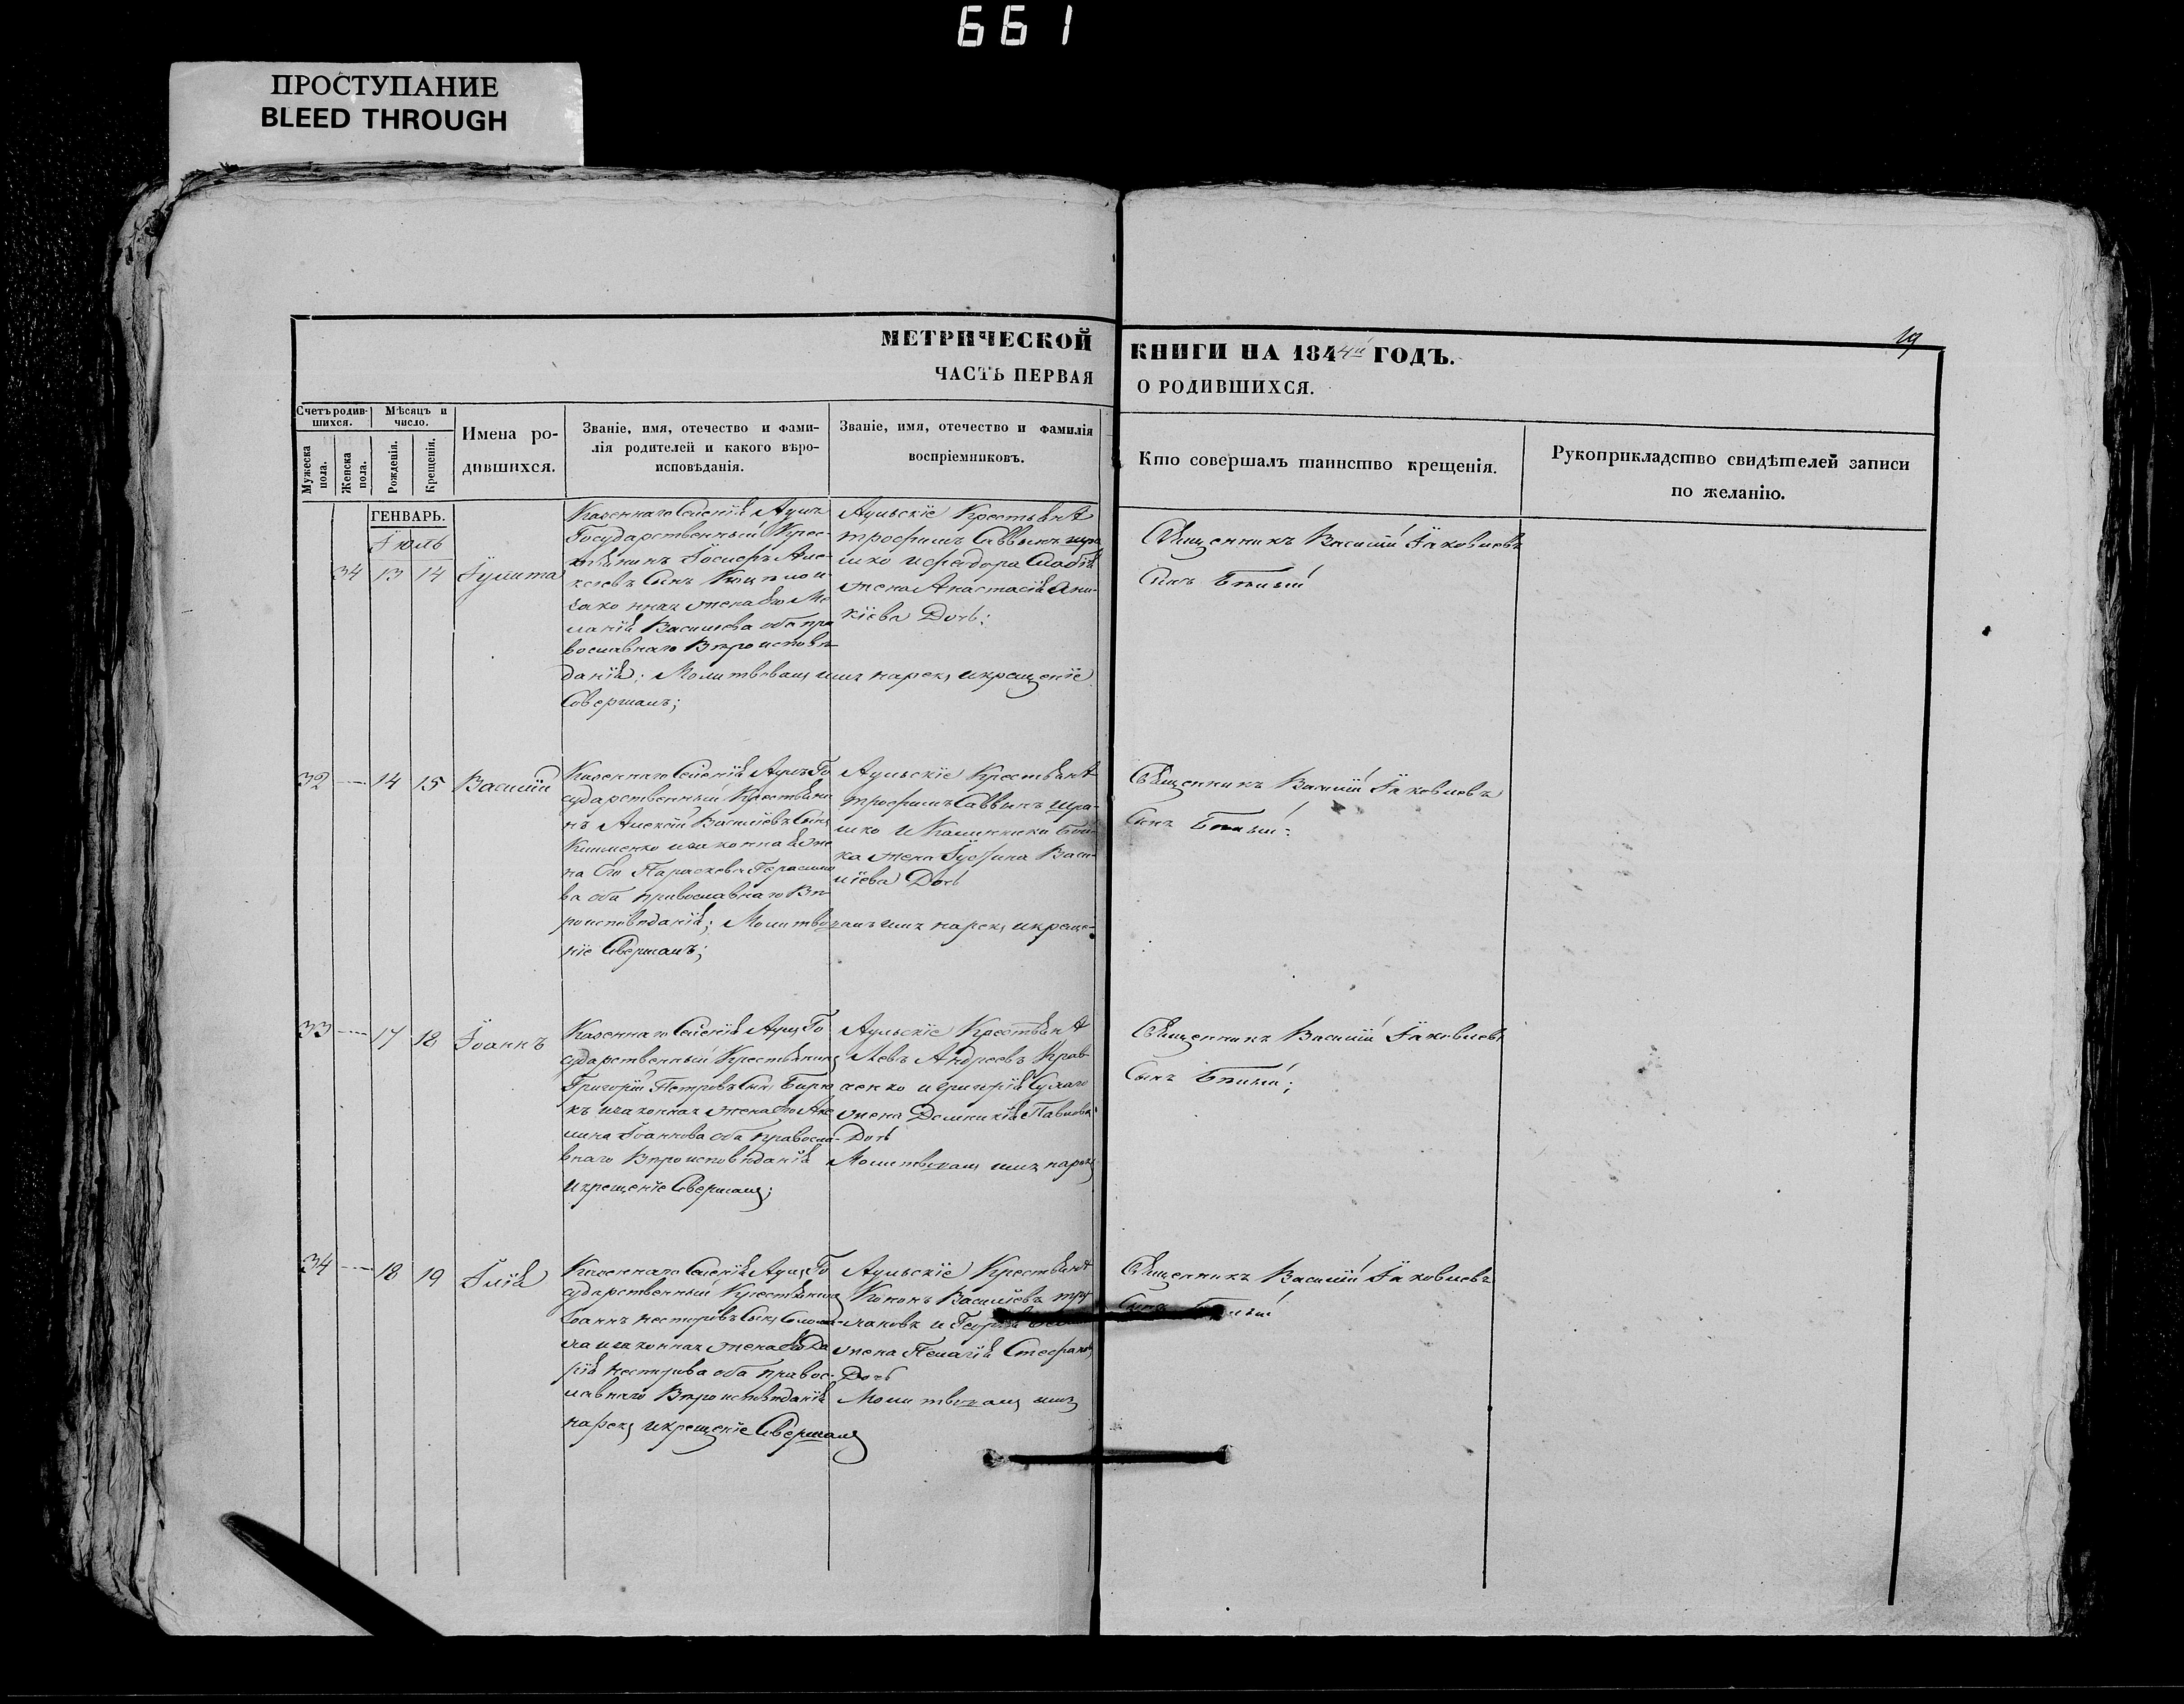 661
ПРОСТУПАНИЕ
BLEED THROUGH
19
МЕТРИЧЕСКОЙ КНИГИ НА 1844й ГОДЪ.
ЧАСТЬ ПЕРВАЯ О РОДИВШИХСЯ.
Счетъ родив-
шихся.
Мужеска пола.
Женска пола.
Мѣсяцъ и
число.
Рожденія.
Крещенія.
Имена ро-
дившихся.
Званіе, имя, отечество и фами-
лія родителей и какого вѣро-
исповѣданія.
Званіе, имя, отечество и фамилія
воспріемниковъ.
Кто совершалъ таинство крещенія.
Рукоприкладство свидѣтелей записи
по желанію.
ГЕНВАРЬ.
Іюль
34 13 14 Іулита
Казеннаго Селенія Аулъ
Государственный Крес-
тьянинъ Іосифъ Але-
ксѣевъ Сынъ
законная жена Его Ме-
ланія Васильева оба пра
вославнаго Вѣроисповѣ
данія: Молитвовалъ имя нарекъ и крещеніе
Совершалъ;
Аульскіе Крестьяне
трофимъ Саввинъ
жена Анастасія
кіева Дочь:
Священникъ Василій Іаковлевъ
Сынъ Бѣлый
32 14 15 Василій
Казеннаго Селенія Аулъ Го
сударственный Крестьяни
нъ Алексѣй Васильевъ Сынъ
Клименко и законная же
на Его Параскева Герасимо
ва оба православнаго Вѣ
роисповѣданія; Молитвовалъ имя нарекъ и креще-
ніе Совершалъ;
Аульскіе Крестьяне
трофимъ Саввинъ
жена Іустина Васи-
ліева Дочь
Священникъ Василій Іаковлевъ
Сынъ Бѣлый:
33 17 18 Іоаннъ
Казеннаго Селенія Аулъ Го
сударственный Крестьянинъ
Григорій Петровъ Сынъ Бирю
къ и законная жена Его Аку
лина Іоаннова оба правосла-
внаго Вѣроисповѣданія
и крещеніе Совершалъ;
Аульскіе Крестьяне
Левъ Андреевъ Крав-
ченко и Григорія Сухаго
жена Домникія Павлова
Дочь
Молитвовалъ имя нарекъ
Священникъ Василій Іаковлевъ
Сынъ Бѣлый;
34 18 19 Илія
Казеннаго Селенія Аулъ Го
сударственный Крестьянинъ
Іоаннъ Несторовъ Сынъ
и законная жена Его Да
рія Нестерова оба правос-
лавнаго Вѣроисповѣданія
нарекъ и крещеніе Совершалъ
Аульскіе Крестьяне
Кононъ Васильевъ
и Георгія
жена Пелагія Стефанова
Дочь
Молитвовалъ имя
Священникъ Василій Іаковлевъ
Сынъ Бѣлый